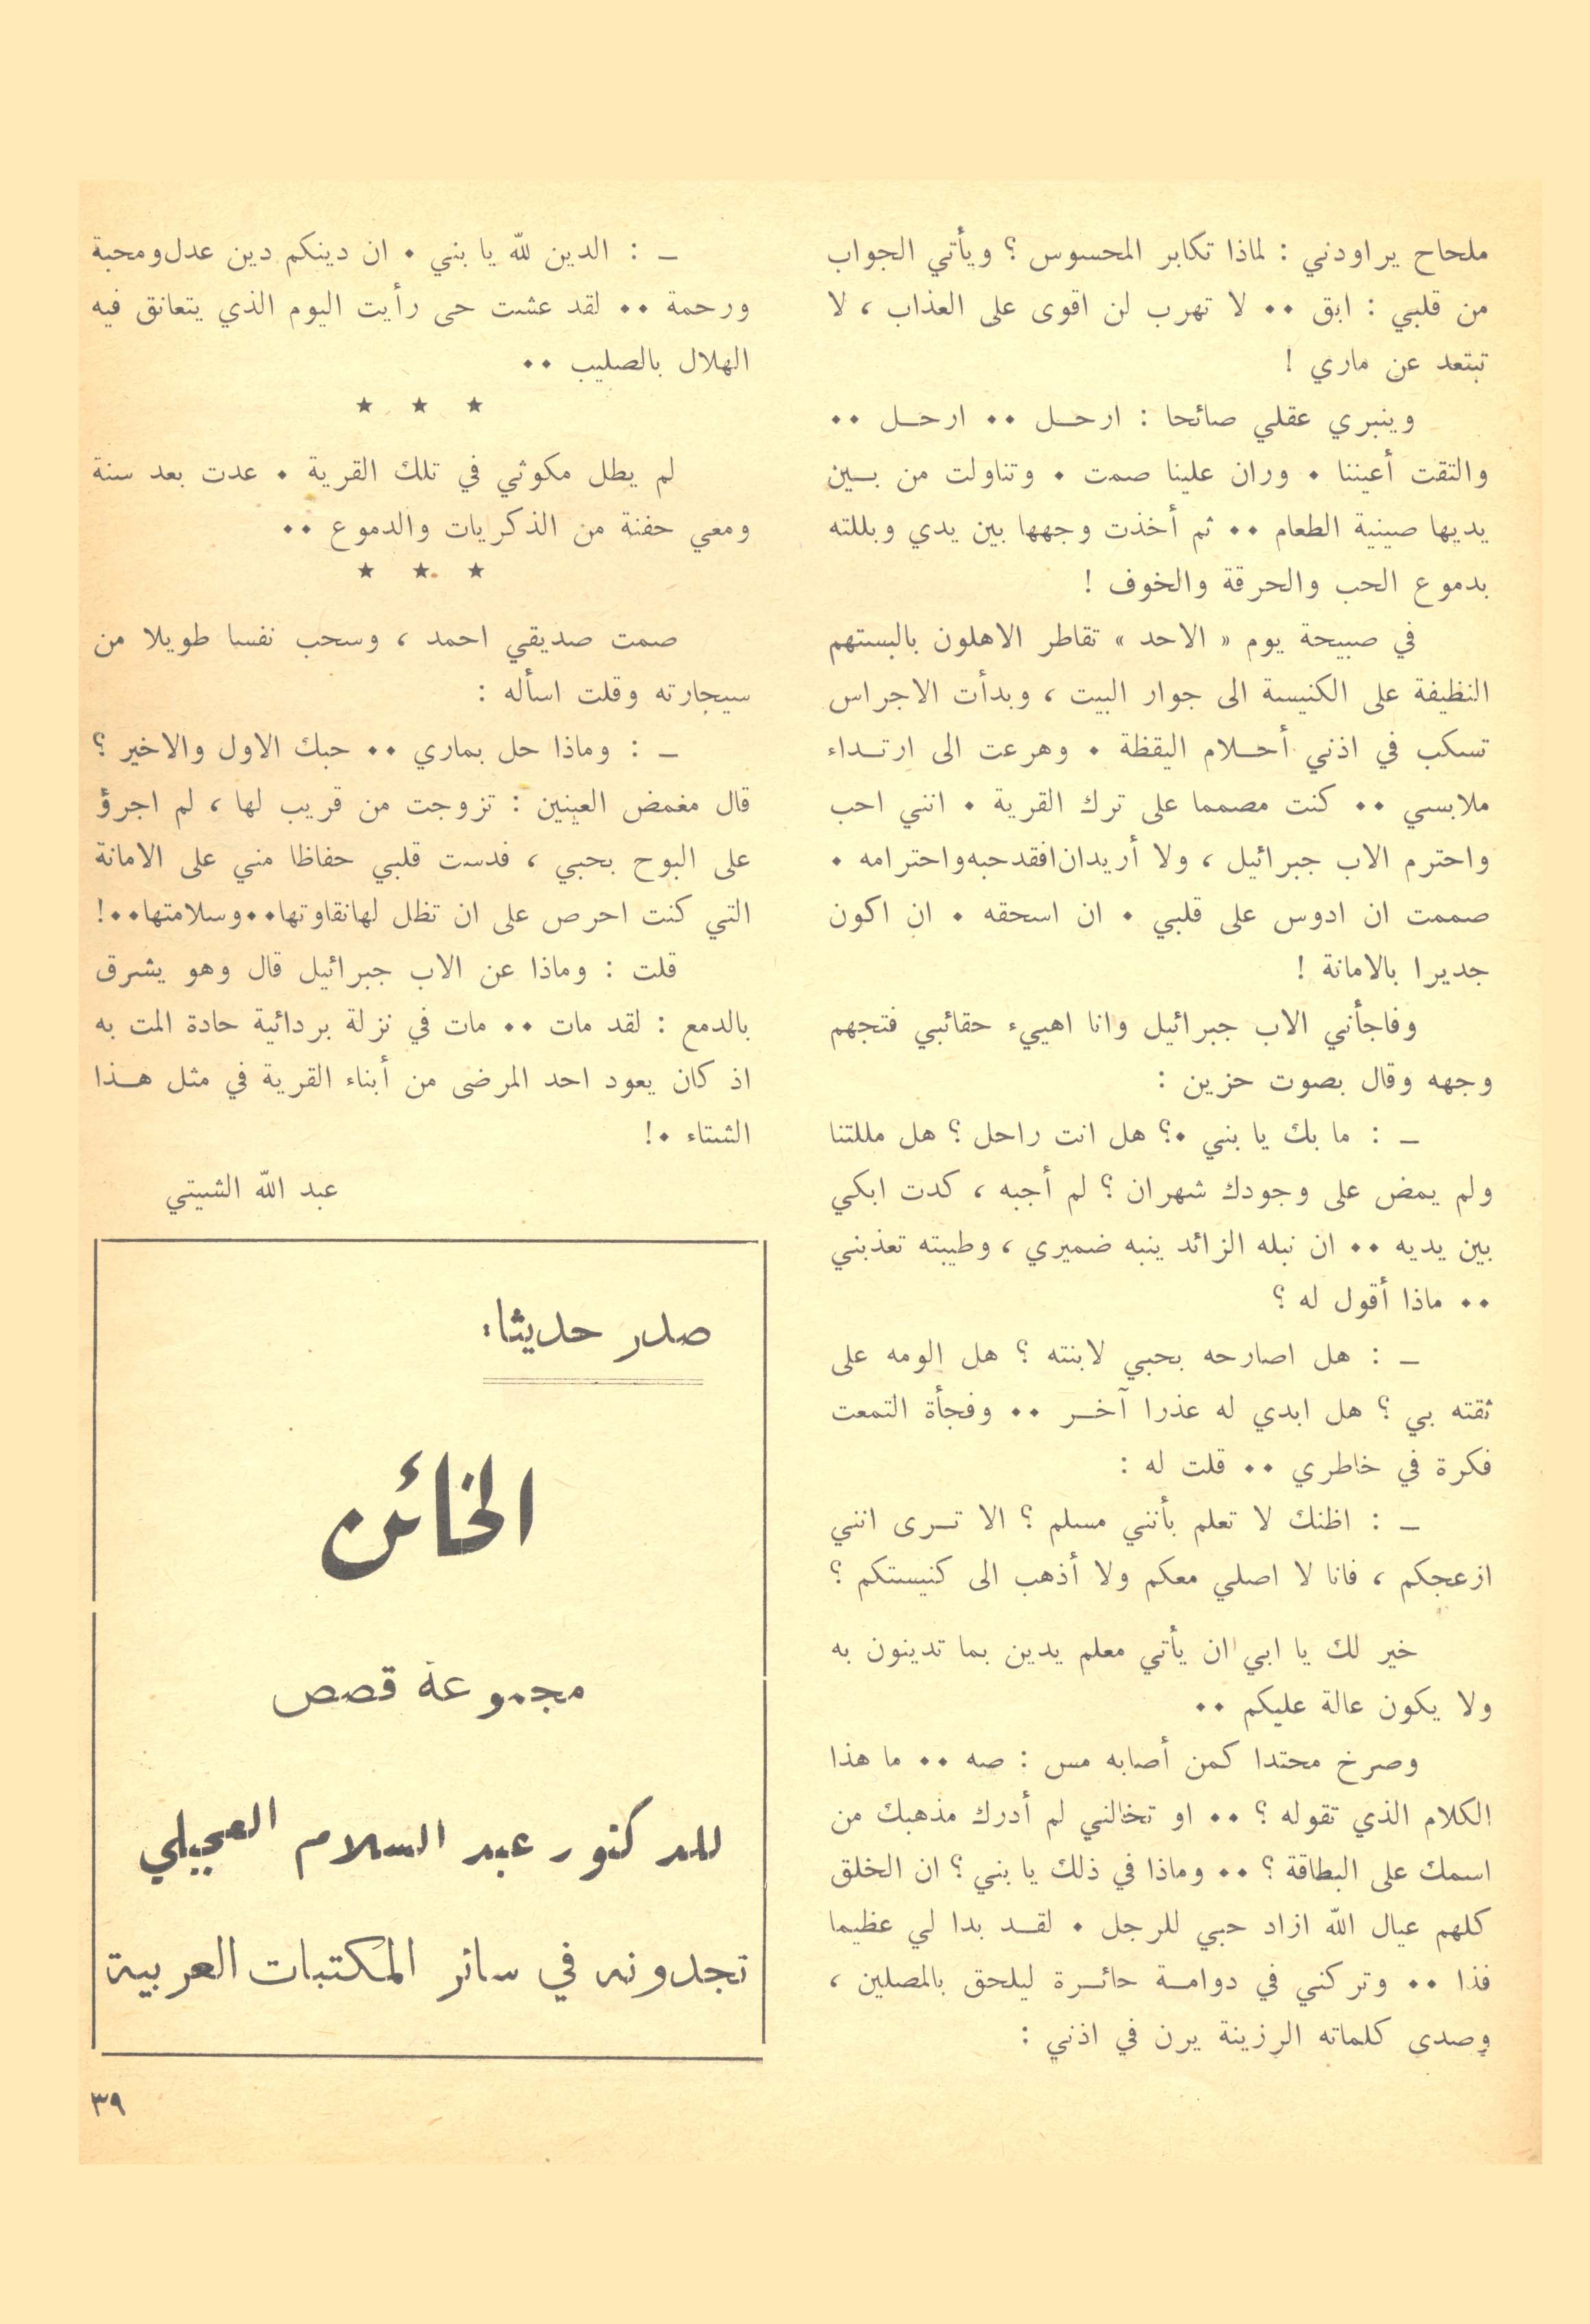 ملحاح يراودني : لماذا تكابر المحسوس ؟ ويأتي الجواب
من قلبي : ابق ٠٠ لا تهرب لن اقوى على العذاب ، لا
تبتعد عن ماري !
وينبري عقلي صائحا : ارحل ٠٠ ارحل ٠٠
والتقت أعيننا ٠ وران علينا صمت ٠ وتناولت من بين
يديها صينية الطعام ٠٠ ثم أخذت وجهها بين يدي وبللته
بدموع الحب والحرقة والخوف !
في صبيحة يوم « الاحد » تقاطر الاهلون بالبستهم
النظيفة على الكنيسة الى جوار البيت ، وبدأت الاجراس
تسكب في اذني أحلام اليقظة ٠ وهرعت الى ارتداء
ملابسي ٠٠ كنت مصمما على ترك القرية ٠ انني احب
واحترم الاب جبرائيل ، ولا أريدان افقد حبه واحترامه ٠
صممت ان ادوس على قلبي ٠ ان اسحقه ٠ ان اكون
جديرا بالامانة !
وفاجأني الاب جبرائيل وانا اهييء حقائبي فتجهم
وجهه وقال بصوت حزين :
ـ : ما بك يا بني ٠؟ هل انت راحل ؟ هل مللتنا
ولم يمض على وجودك شهران ؟ لم أجبه ، كدت ابكي
بين يديه ٠٠ ان نبله الزائد ينبه ضميري ، وطيبته تعذبني
٠٠ ماذا أقول له ؟
ـ : هل اصارحه بحبي لابنته ؟ هل الومه على
ثقته بي ؟ هل ابدي له عذرا آخر ٠٠ وفجأة التمعت
فكرة في خاطري ٠٠ قلت له :
ـ : اظنك لا تعلم بأنني مسلم ؟ الا ترى انني
ازعجكم ، فانا لا اصلي معكم ولا أذهب الى كنيستكم ؟
خير لك يا ابي ان يأتي معلم يدين بما تدينون به
ولا يكون عالة عليكم ٠٠
وصرخ محتدا كمن أصابه مس : صه ٠٠ ما هذا
الكلام الذي تقوله ؟ ٠٠ او تخالني لم أدرك مذهبك من
اسمك على البطاقة ؟ ٠٠ وماذا في ذلك يا بني ؟ ان الخلق
كلهم عيال الله ازاد حبي للرجل ٠ لقد بدا لي عظيما
فذا ٠٠ وتركني في دوامة حائرة ليلحق بالمصلين ،
وصدى كلماته الرزينة يرن في اذني :
ـ : الدين لله يا بني ٠ ان دينكم دين عدل ومحبة
ورحمة ٠٠ لقد عشت حى رأيت اليوم الذي يتعانق فيه
الهلال بالصليب ٠٠
★ ★ ★
لم يطل مكوثي في تلك القرية ٠ عدت بعد سنة
ومعي حفنة من الذكريات والدموع ٠٠
★ ★ ★
صمت صديقي احمد ، وسحب نفسا طويلا من
سيجارته وقلت اسأله :
ـ : وماذا حل بماري ٠٠ حبك الاول والاخير ؟
قال مغمض العينين : تزوجت من قريب لها ، لم اجرؤ
على البوح بحبي ، فدست قلبي حفاظا مني على الامانة
التي كنت احرص على ان تظل لهانقاوتها٠٠وسلامتها٠٠!
قلت : وماذا عن الاب جبرائيل قال وهو يشرق
بالدمع : لقد مات ٠٠ مات في نزلة بردائية حادة المت به
اذ كان يعود احد المرضى من أبناء القرية في مثل هذا
الشتاء ٠!
عبد الله الشيتي
صدر حديثا:
الخائن
مجموعة قصص
للدكتور عبد السلام العجيلي
تجدونه في سائر المكتبات العربية
٣٩